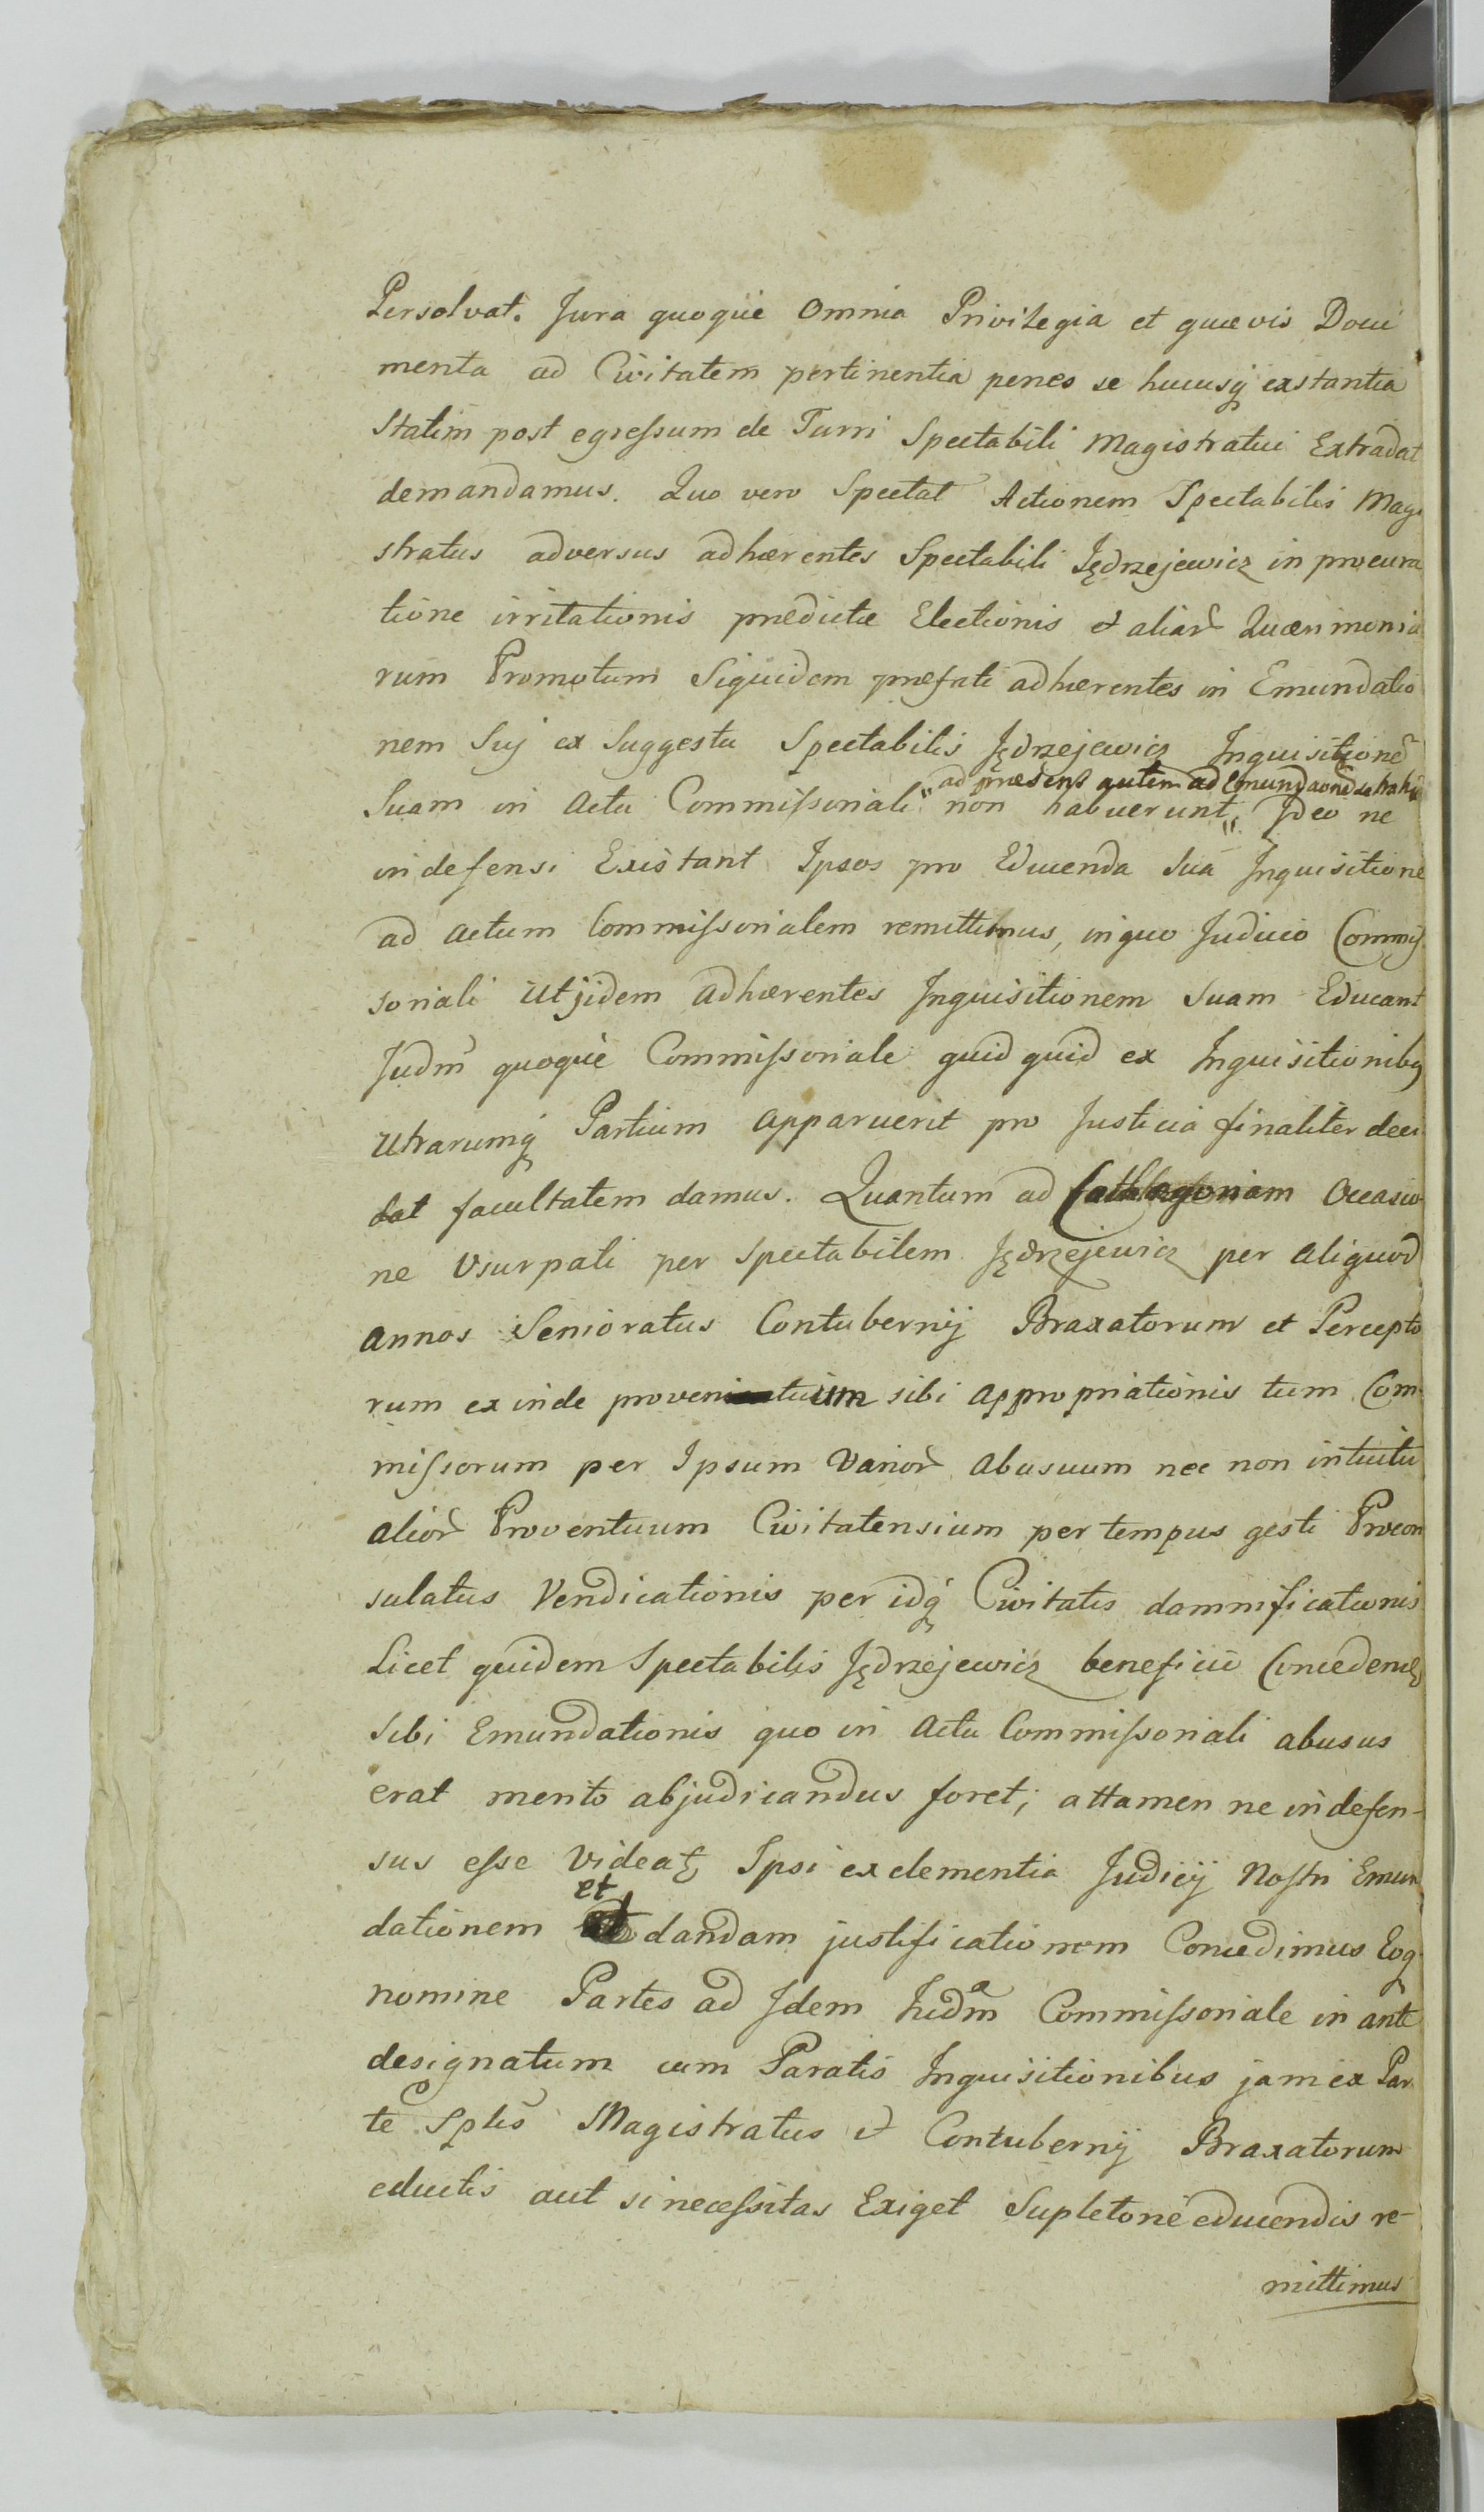 Persolvat. Jura quoque Omnia Privilegia et quævis Docu
menta ad Civitatem pertinentia penes se hucusq́ exstantia
Statim post egressum de Turri Spectabili Magistratui Extradat
demandamus. Quo vero Spectat Actionem Spectabilis Magi
stratus adversus adhærentes Spectabili Jędrzejewicz in procura
tione irritationis prædictæ Electionis et aliar̃ Quærimonia
rum Promotum Siquidem præfati adhærentes in Emundatio
nem Suj ex Suggestu Spectabilis Jędrzejewicz Inquisitionẽ
ad præsens autem ad Emundaonẽ se
Suam in Actu Commissoriali " non habuerunt, " Ideo ne
indefensi Existant Ipsos pro Educenda Sua Inquisitione
ad Actum Commissorialem remittimus, in quo Judicio Commis
soriali Ut jidem Adhærentes Inquisitionem Suam Educant
Judm̃ quoque Commissoriale quidquid ex Inquisitionibq
Utrarumq́ Partium Apparuerit pro Justicia finaliter deci
dat facultatem damus. Quantum ad Cathegoriam Occasio
ne Usurpati per Spectabilem Jędrzejewicz per Aliquod
Annos Senioratus Contubernij Braxatorum et Percepto
rum exinde proventuum sibi Appropriationis tum Com
missorum per Ipsum Varior̃ Abusuum nec non intuitu
Alior̃ Proventuum Civitatensium per tempus gesti Procon
sulatus Vendicationis per idq́ Civitatis damnificationis
Licet quidem Spectabilis Jędrzejewicz beneficiũ Concedendę
Sibi Emundationis quo in Actu Commissoriali abusus
erat merito abjudicandus foret, attamen ne indefen-
sus esse Videatr, Ipsi ex clementia Judicij Nostri Emun
et
dationem dandam justificationem Concedimus Eoq
nomine Partes ad Idem Judm̃ Commissoriale in ante
designatum cum Paratis Inquisitionibus jam ex Par
te Splis̃ Magistratus et Contubernij Braxatorum
eductis aut si necessitas Exiget Supletorie educendis re-
mittimus